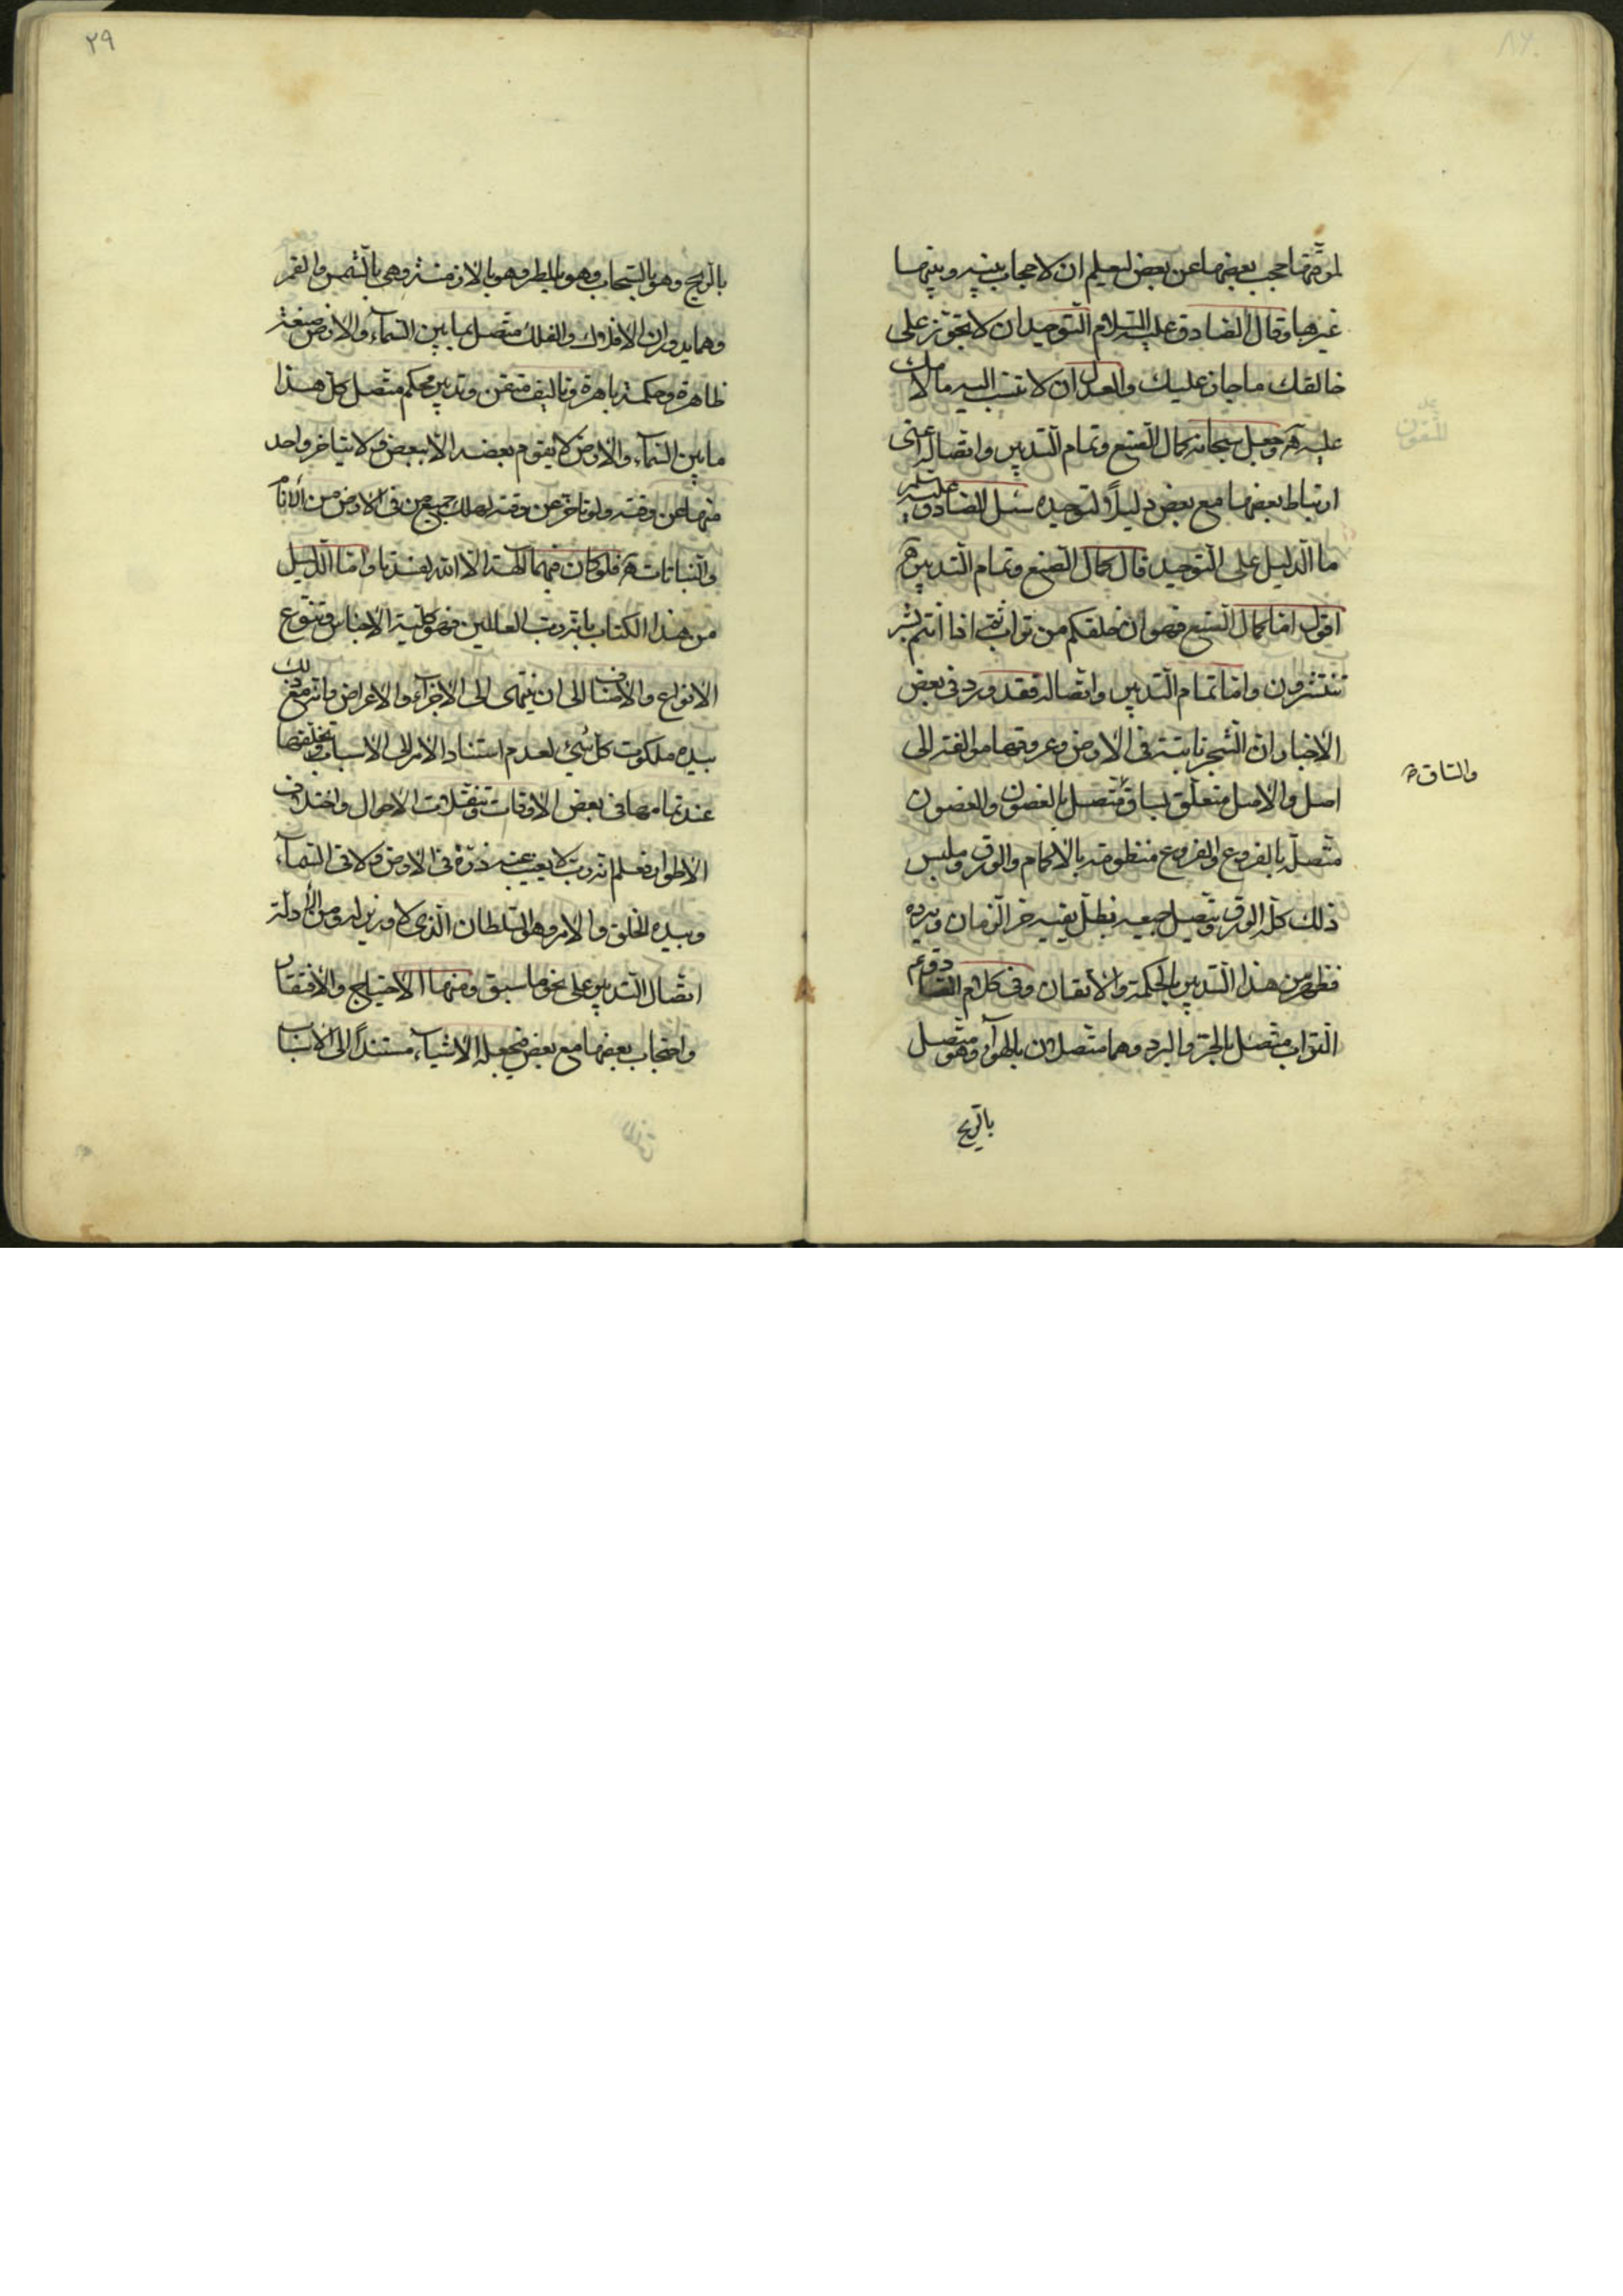 لموقتها حجب بعضها عن بعض ليعلم ان لا حجاب بينه وبينها
غيرها وقال الصادق عليه السلام التوحيد ان لا تجوّز على
خالقك ما جاز عليك والعدل ان لا تنسب اليه ما لامك
عليه وجعل سبحانه كمال الصنع وتمام التدبير واتصاله اعنى
ارتباط بعضها مع بعض دليلاً لتوحيده سئل الصادق عليه
ما الدليل على التوحيد قال كمال الصنع وتمام التدبير
اقول اما كمال الصنع فهو ان خلقكم من تراب ثم اذا انتم بشر
تنتشرون واما تمام التدبير واتصاله فقد ورد فى بعض
الاخبار ان الشجر نابتة فى الارض وعروقها موالفة الى
اصل والاصل متعلّق بساق متصل بالغصون والغصون
والساق
متصل بالفروع والفروع منظومة بالاكمام والورق وملبس
ذلك كلّه الورق ويتصل جميعه بظلّ يقيه حر الزمان وبرده
فظهر من هذا التدبير بالحكمة والاتقان وفى كلام الصادق ع
التراب متصل بالحرّ والبرد وهما متصلان بالهوآء وهو متصل
بالريح
٢٩
بالريح وهو بالسحاب وهو بالمطر وهو بالازمنة وهى بالشمس والقمر
وهما بدوران الافلاك والفلك متصل بما بين السمآء والارض صنعة
ظاهرة وحكمة باهرة وتاليف متقن وتدبير محكم متصل كل هذا
ما بين السمآء والارض لا يقوم بعضه الا ببعض ولا يتاخر واحد
منها عن وقته ولو تاخر عن وقته لهلك جميع من فى الارض من الانام
والنباتات فلو كان فيهما آلهة الا الله لفسدتا واما الدليل
من هذا الكتاب بانه رب العالمين فهو كلية الاجناس وتنوع
الانواع والاصناف الى ان ينتهى الى الاجزآء والاعراض وانه مع ذلك
بيده ملكوت كل شئ لعدم استناد الامر الى الاسباب وتخلفها
عند تمامها فى بعض الاوقات وتنقلات الاحوال واختلاف
الاطوار فعلم انه رب لا يعزب عنه ذرّة فى الارض ولا فى السمآء
وبيده الخلق والامر وهو السلطان الذى لا وزير له ومن الأدلة
اتصال التدبير على نحو ما سبق ومنها الاحتياج والافتقار
واحتجاب بعضها مع بعض فجعله الاشيآء مستنداً الى الاسباب